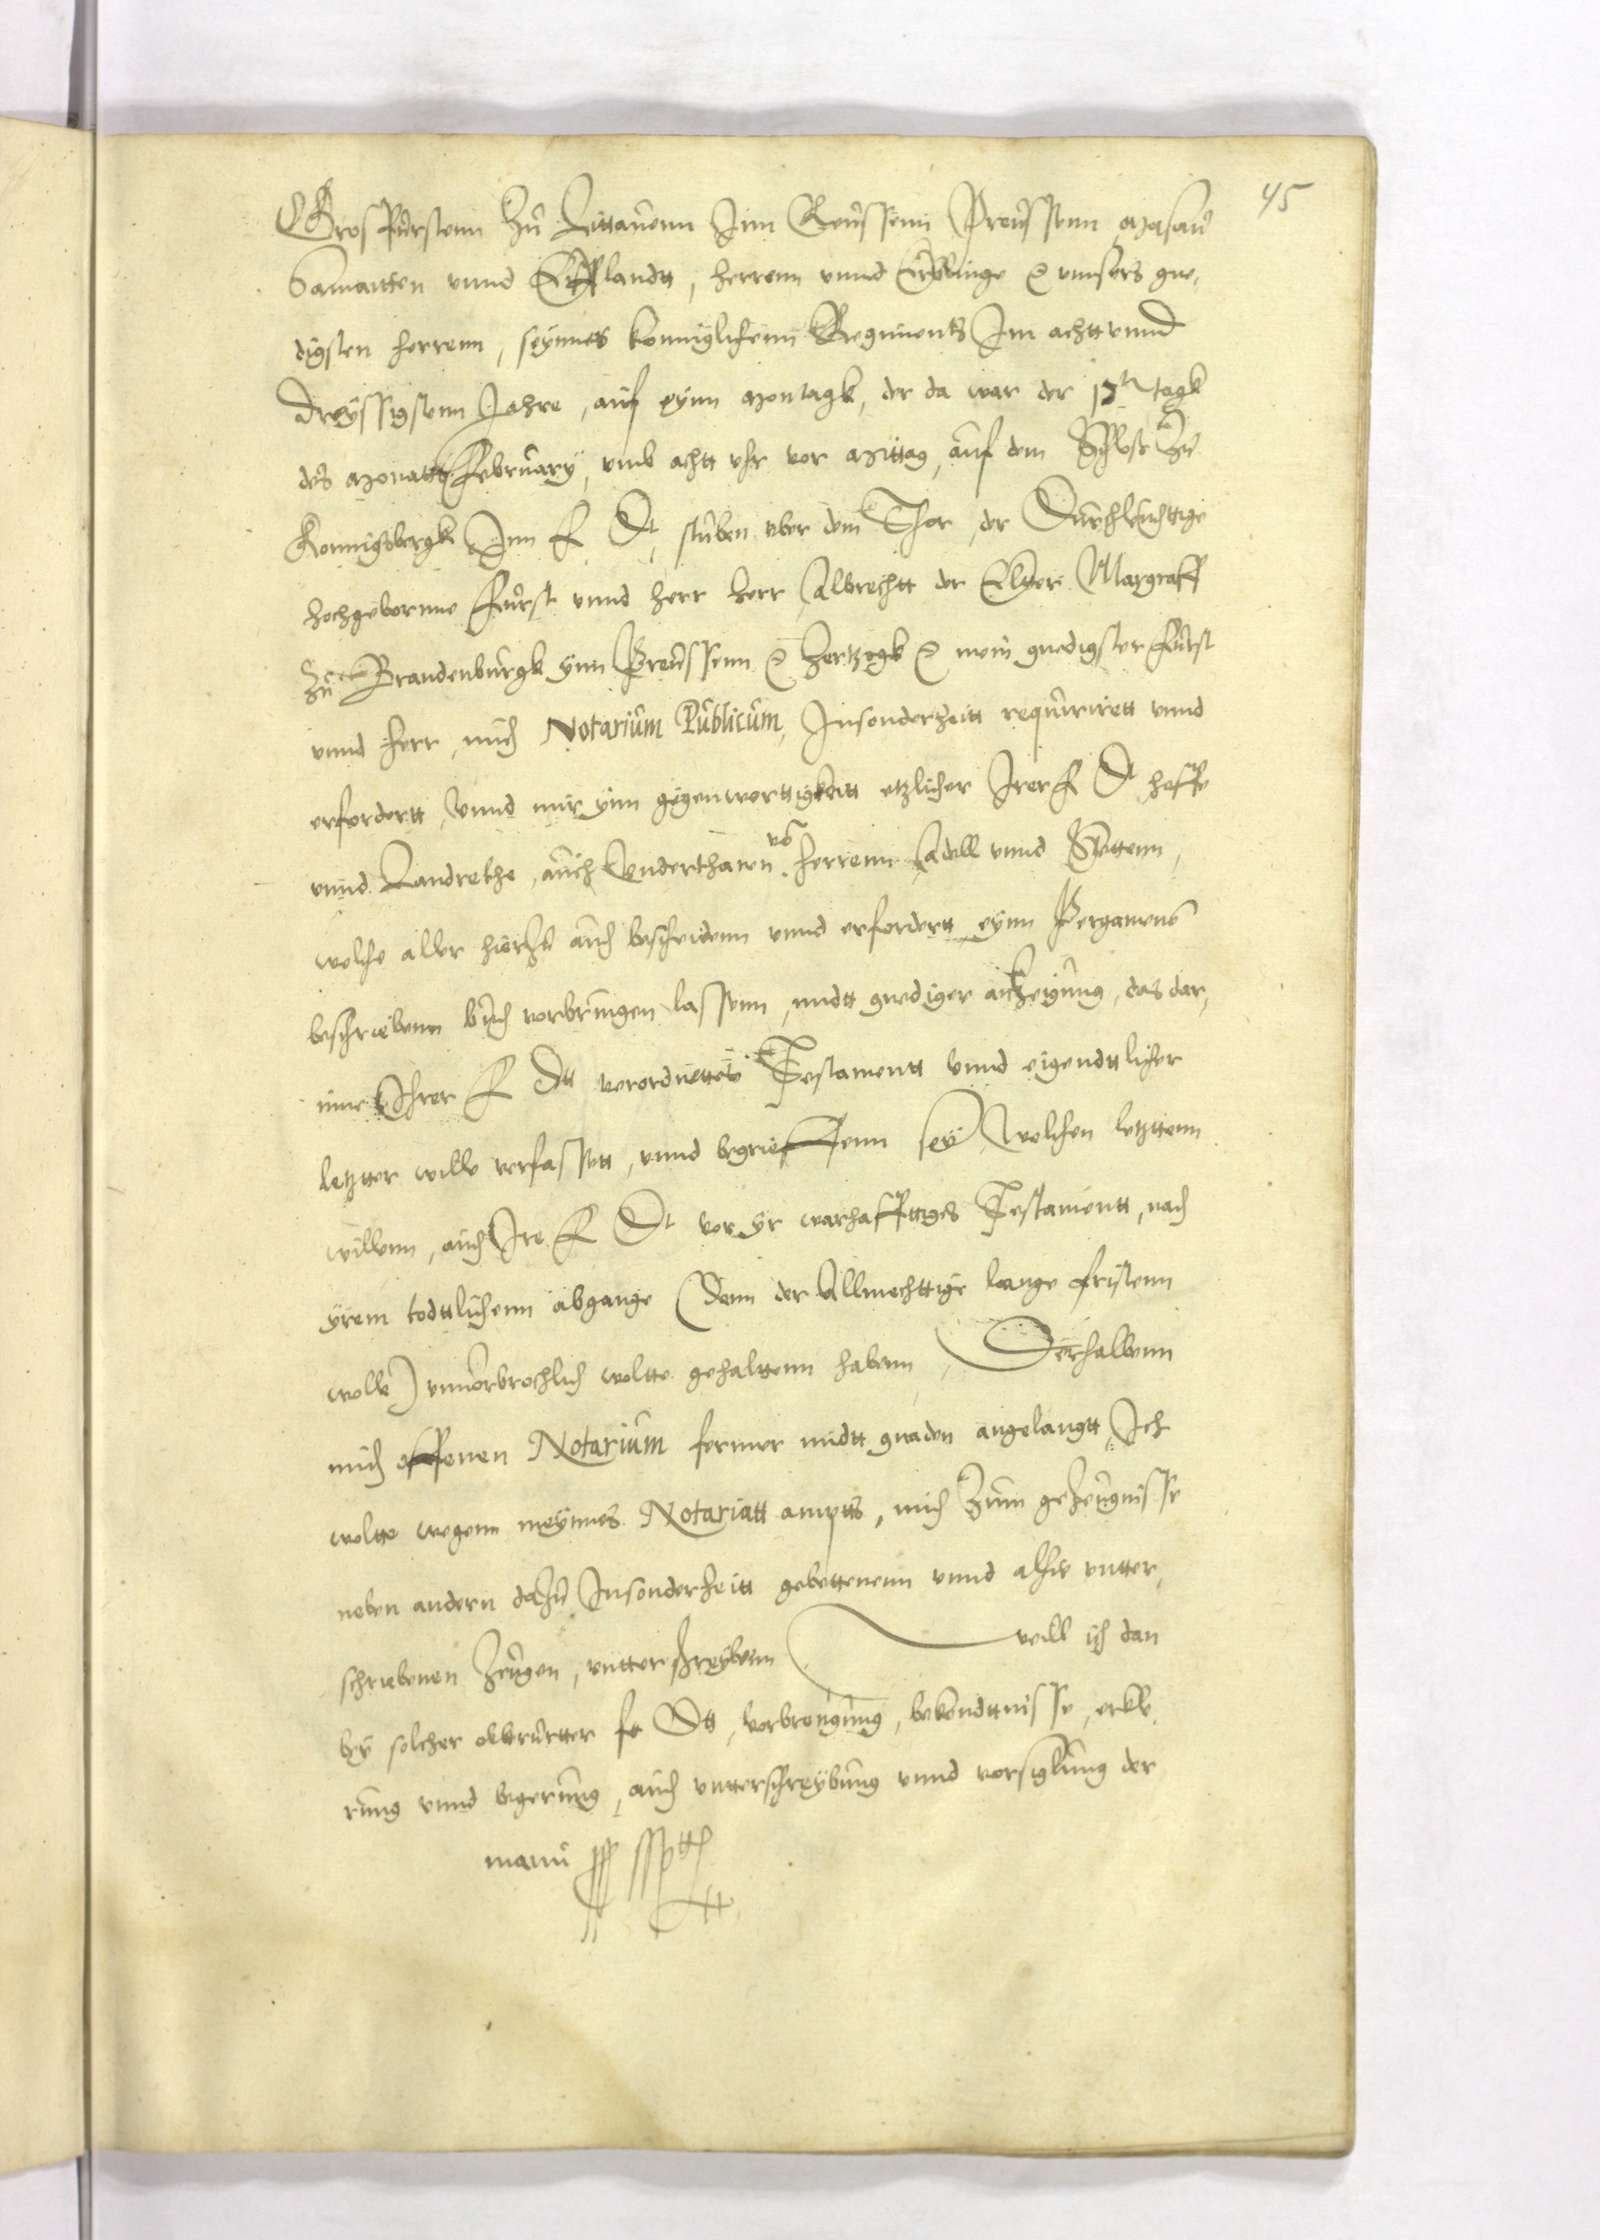 45
Grosfursten zu Littauenn Inn Reussenn Preussenn Masau
Samaitten unnd Liefflandtt, herrenn unnd Erblinge &c unsers gne,
digsten herrenn, seynnes konniglichenn Regiments Im achtt unnd
dreyssigstenn Jahre, auf eynn Montagk, der da war der 17tn tagk
des Monatts February, umb achtt uhr vor Mittag, auf dem Schlosse zu
Konnigsbergk Inn F Dt, stuben uber dem Thor, der Durchleuchttige
hochgebornne Furst unnd herr herr Albrechtt der Elter Marggraff
zu Brandenburgk ynn Preussenn &c hertzogk &c mein gnedigster Furst
unnd herr, mich Notarium Publicum, Insonderheitt requirirett unnd
erfordertt, unnd mir ynn gegenwerttigkeitt etzlicher Irer F Dt hoffe
unnd Landrethe, auch Underthanen vo herrenn Adell unnd Stettenn,
welche aller hierzu auch bescheidenn unnd erfordertt eynn Pergamene
beschriebenn buch vorbringen lassenn, midtt gnediger anzeigung, das dar,
inne Ihrer F Dtt verordnettes Testamentt unnd eigendttlicher
letzter wille verfassett, unnd begrieffenn sey, Welchen letzttenn
willenn, auch Ire F Dt vor yr warhafttiges Testamentt, nach
yrem todttlichenn abgange (Denn der Allmechttige lange fristenn
wolle) unvorbrochlich woltte gehalttenn habenn, Derhalbenn
mich offenen Notarium ferner midtt gnaden angelangtt, Ich
woltte wegenn meynnes Notariatt amptts, mich zum gezeugnisse
neben andern dazu Insonderheitt gebettenenn unnd alhie untter,
schriebenen zeugen, untterschreybenn will ich dan
bey solcher obberurtter fr Dtt, vorbrengung, bekendttnisse, erkle,
rung unnd begerung, auch untterschreybung unnd vorsiglung der
manu sspt